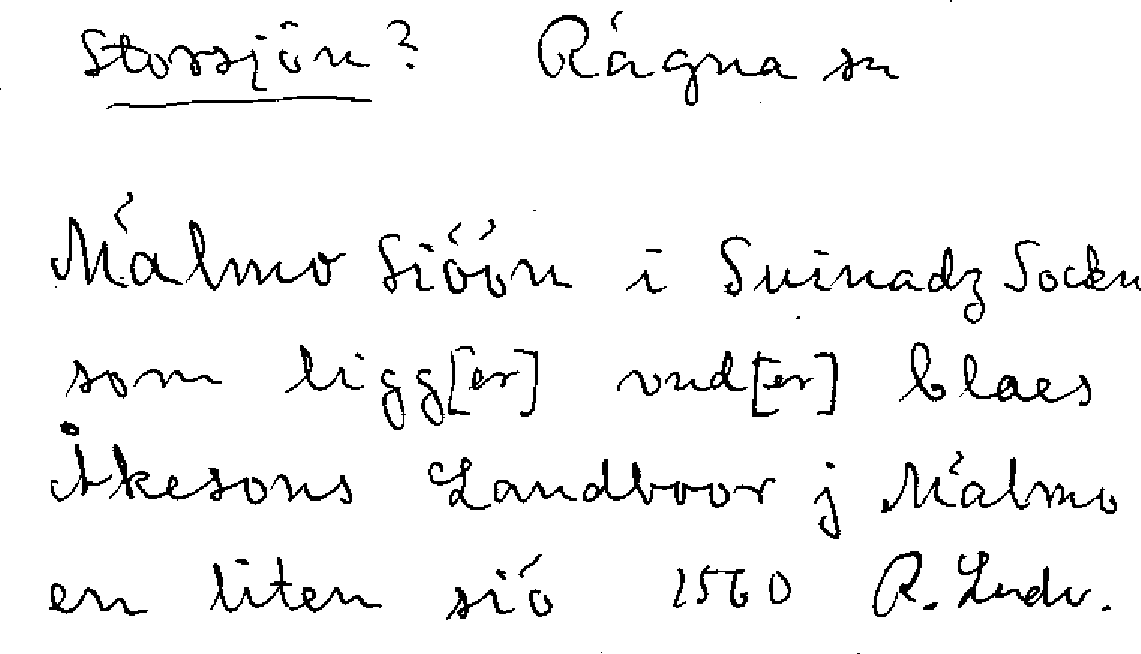 Storsjön? Rágna sn
Málmo Sióón i Suinadz Sockn
som ligg[er] vnd[er] Claes
Åkesons Landboor j Málmo
en liten sió 1560 R. Ludv.